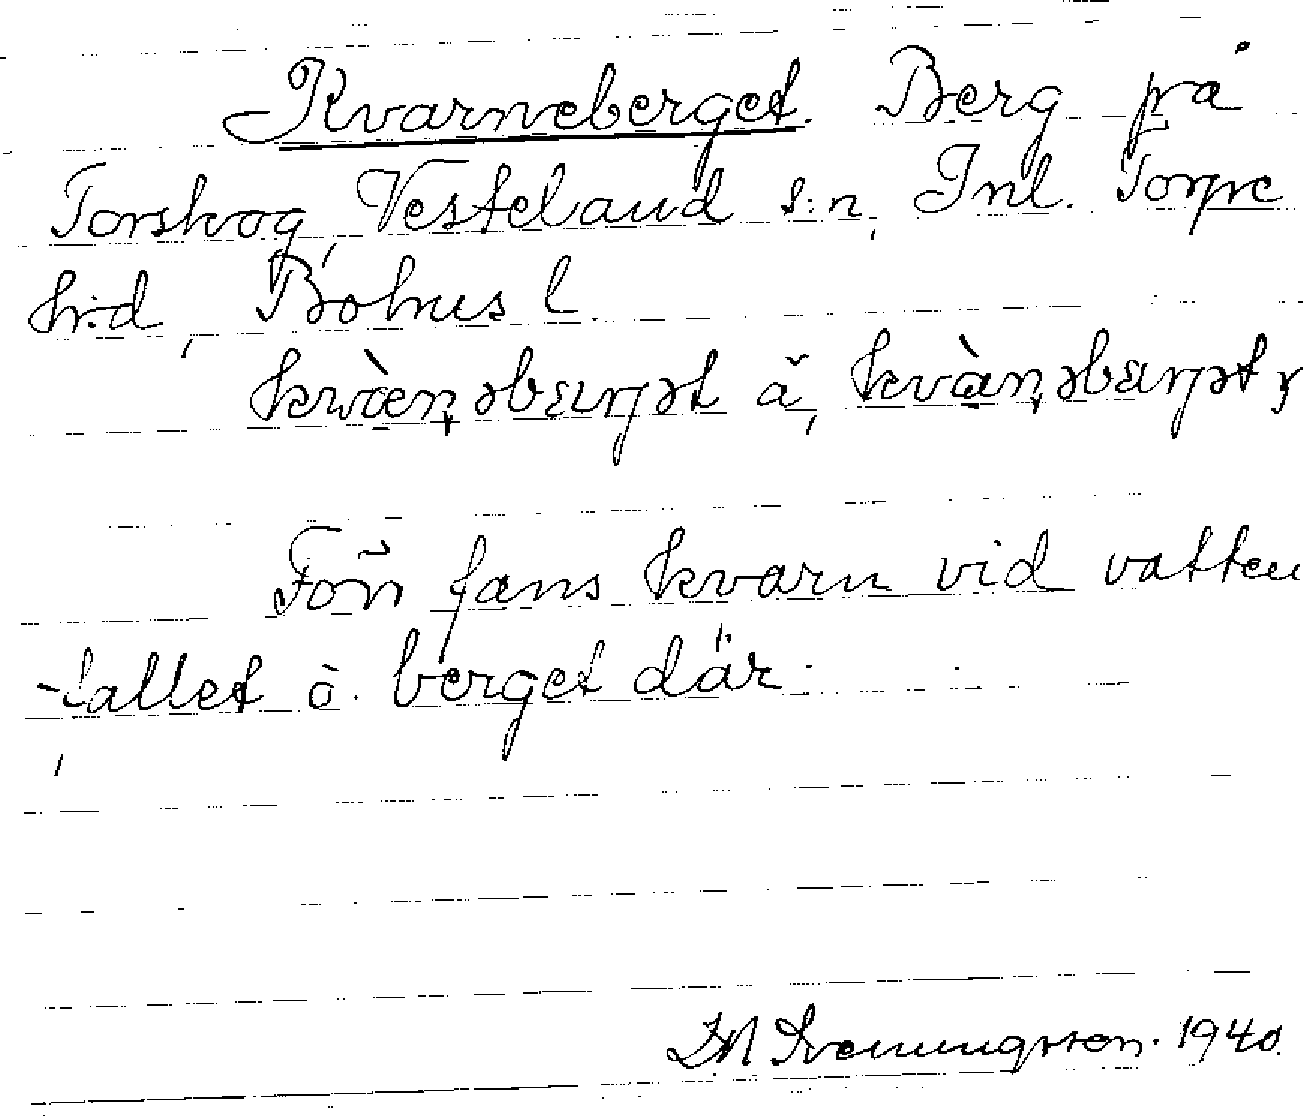 Kvarneberget. Berg på
Torskog, Vesteland s:n, Inl. Torpe
hr:d, Bohus l.
kvàn,əbærjət å, kvàn,əbærjət,
Förr fans kvarn vid vatten
-fallet o. berget där.
Svenningsson. 1940.